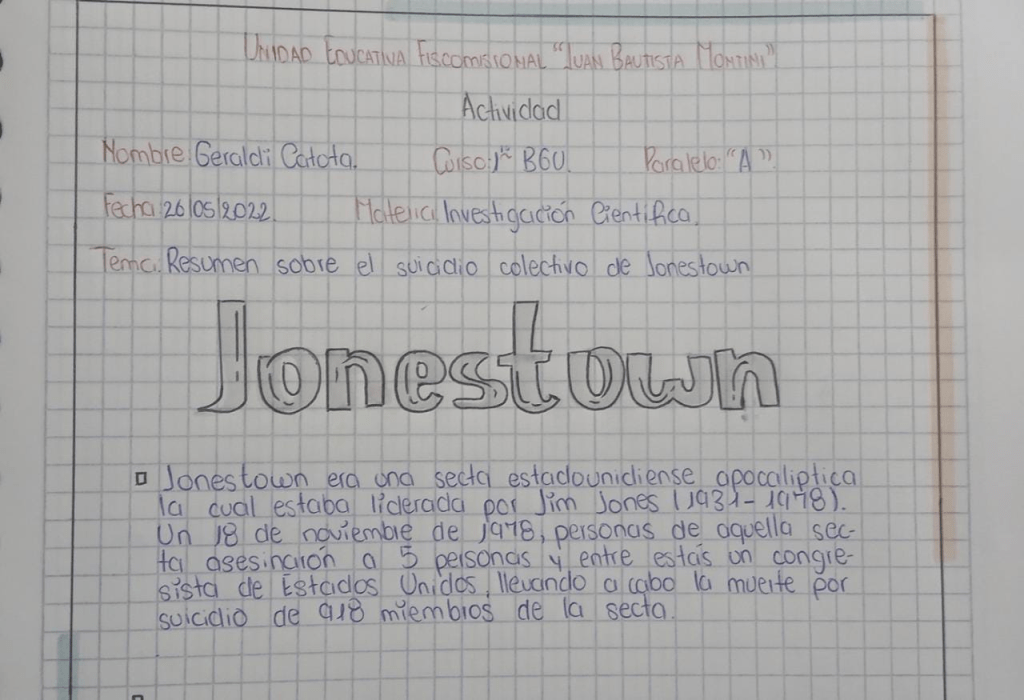 UNIDAD EDUCATIVA FISCOMISIONAL "JUAN BAUTISTA MONTINI"
Actividad
Nombre: Geraldi Catota. Curso: 1ro BGU. Paralelo: "A".
Fecha: 26/05/2022. Materia: Investigación Científica.
Tema: Resumen sobre el suicidio colectivo de Jonestown
Jonestown
Jonestown era una secta estadounidiense apocaliptica
la cual estaba liderada por Jim Jones (1931-1978).
Un 18 de noviembre de 1978, personas de aquella sec-
ta asesinarón a 5 personas y entre estás un congre-
sista de Estados Unidos, llevando a cabo la muerte por
suicidio de 918 miembros de la secta.